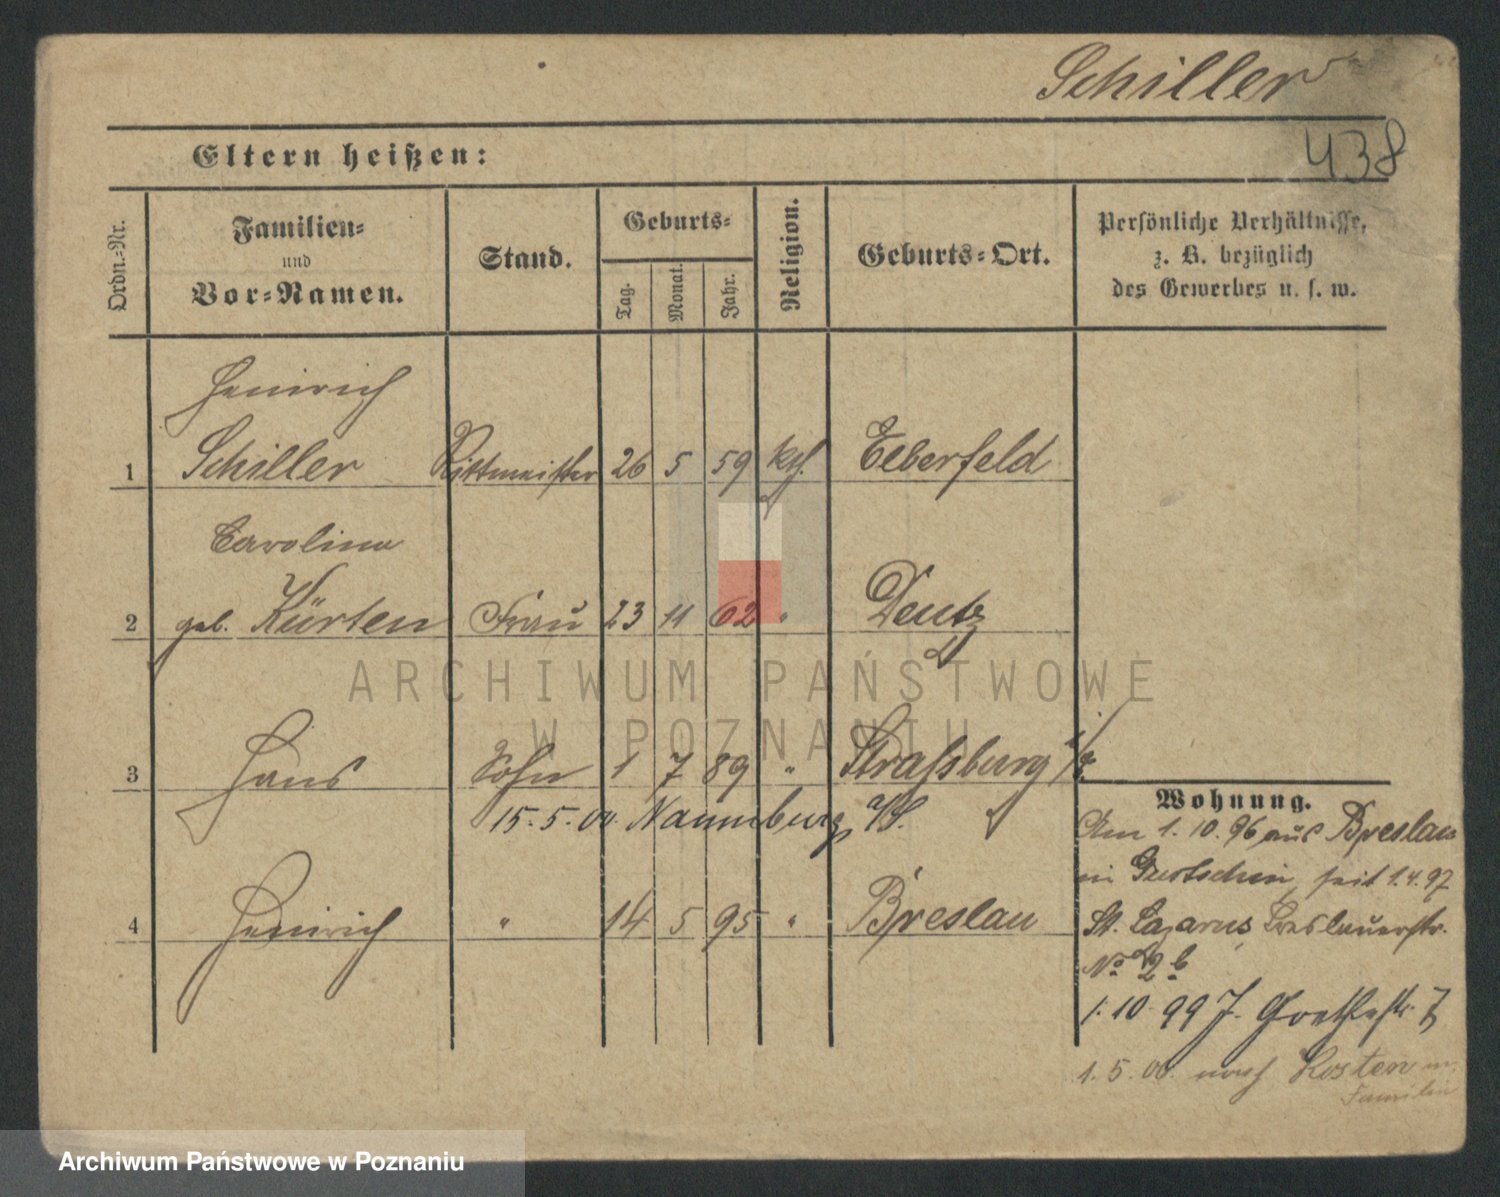 Schiller
438
Eltern heißen:
Ordn.-Nr.
Familien-
und
Vor-Namen.
Stand.
Geburts-
Tag.
Monat.
Jahr.
Religion.
Geburts-Ort.
Persönliche Verhältnisse,
z. B. bezüglich
des Gewerbes u. s. w.
Heinrich
1 Schiller Rittmeister 26 5 59 kth. Elberfeld
Carolina
2 geb. Kürten Frau 23 11 62 " Deutz
ARCHIWUM PAŃSTWOWE
W POZNANIU
3 Hans Sohn 1 7 89 " Straßburg i/E.
15.5.00. Naumburg a/S.
4 Heinrich " 14 5 95 " Breslau
Wohnung.
Am 1.10.96 aus Breslau
in Gurtschin, seit 1.4.97
St. Lazarus, Breslauerstr.
No 2b
1.10.99 J. Goethestr. 7
1.5.00. nach Kosten m.
Familie
Archiwum Państwowe w Poznaniu